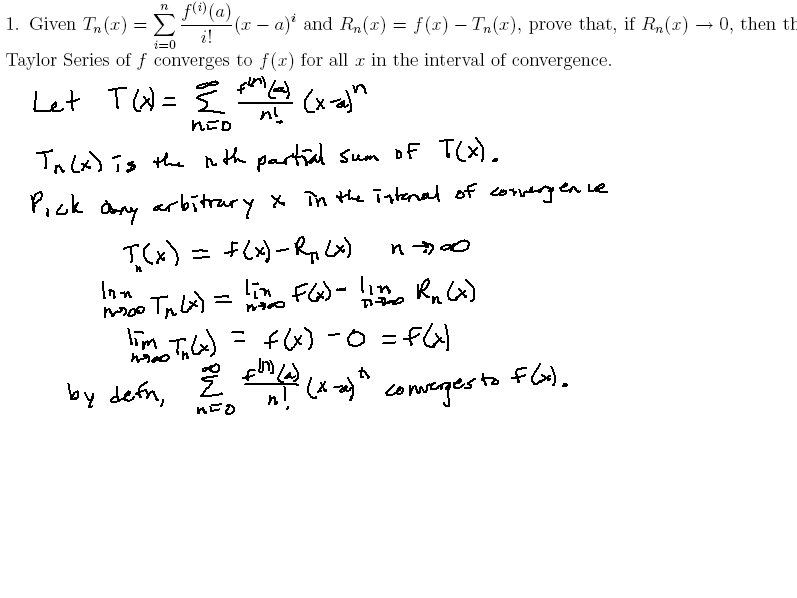 1. Given $T_n(x) = \sum_{i=0}^{n} \frac{f^{(i)}(a)}{i!}(x-a)^i$ and $R_n(x) = f(x) - T_n(x)$, prove that, if $R_n(x) \to 0$, then th
Taylor Series of $f$ converges to $f(x)$ for all $x$ in the interval of convergence.
Let $T(x) = \sum_{n=0}^{\infty} \frac{f^{(n)}(a)}{n!}(x-a)^n$
$T_n(x)$ is the nth partial sum of $T(x)$.
Pick any arbitrary x in the interval of convergence
$T_n(x) = f(x) - R_n(x)$ $n \to \infty$
$\lim_{n\to\infty} T_n(x) = \lim_{n\to\infty} f(x) - \lim_{n\to\infty} R_n(x)$
$\lim_{n\to\infty} T_n(x) = f(x) - 0 = f(x)$
by defn, $\sum_{n=0}^{\infty} \frac{f^{(n)}(a)}{n!}(x-a)^n$ converges to $f(x)$.